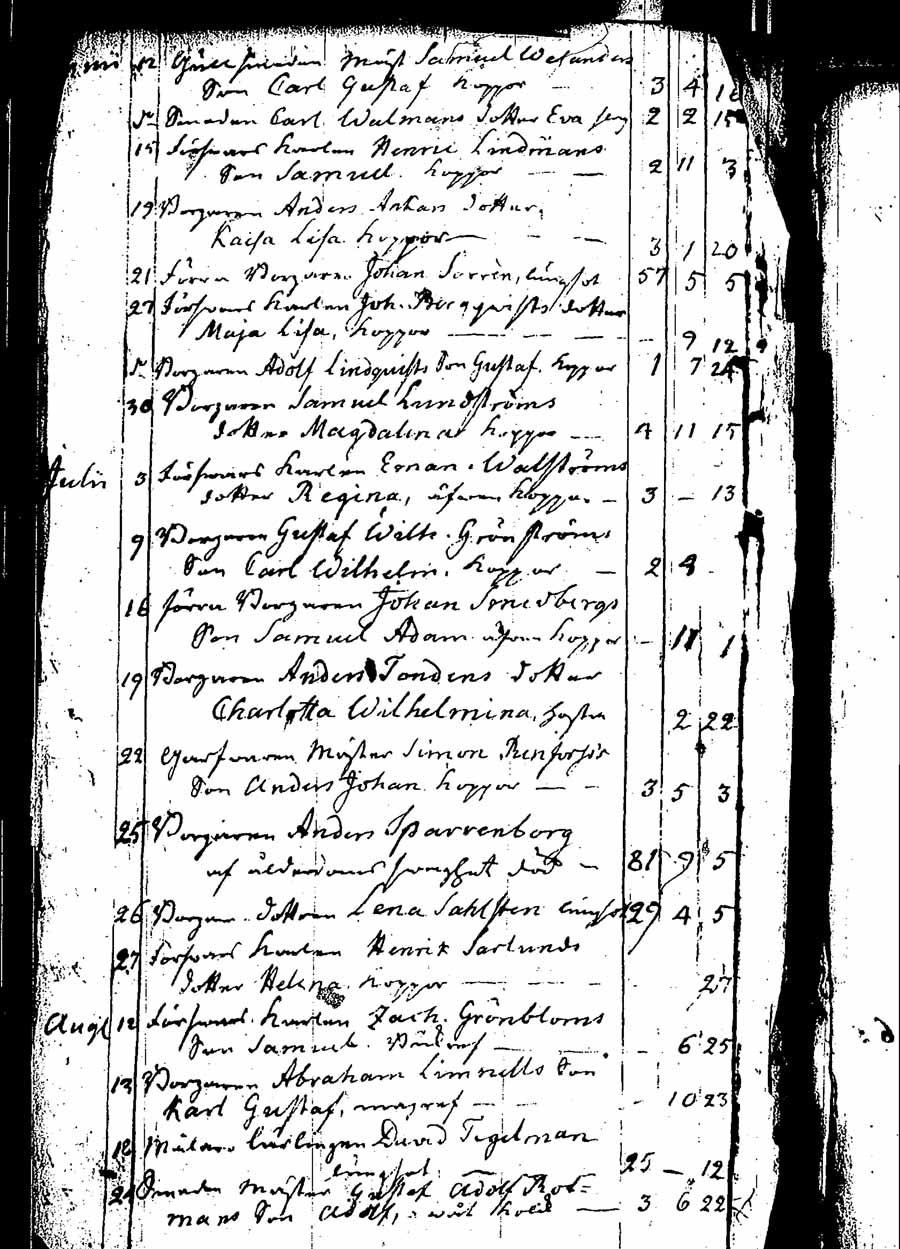 12 Gullsmeden Mäst Samuel Welanders
Son Carl Gustaf koppor — 3 4 16
Dn Smeden Carl Walmans dotter Eva 2 2 15
15 Försvars Karlen Henric Lindmans
Son Samuel. koppor — — 2 11 3
19 Borgaren Anders Ankars dotter,
Kaisa Lisa koppor — — — 3 1 20
21 Förra Borgaren Johan Sorrén, lungsot 57 5 5
27 Försvars Karlen Joh. Bergqvists dotter
Maja Lisa, koppor — — — — 9 12
Dn Borgaren Adolf Lindquists Son Gustaf. koppor 1 7 24
30 Borgaren Samuel Lundströms
dotter Magdalena koppor — 4 11 15
Julii 3 Försvars Karlen Ernan. Walströms
dotter Regina, äfven koppor — 3 — 13
9 Borgaren Gustaf Wilh. Grönströms
Son Carl Wilhelm. koppor — 2 8
16 Förra Borgaren Johan Smedbergs
Son Samuel Adam äfven koppor — 11 1
19 Borgaren Anders Tondens dotter
Charlotta Wilhelmina, hosta 2 22
22 Garfvaren Mäster Simon Renforss
Son Anders Johan koppor — — 3 5 3
25 Borgaren Anders Sparrenborg
af ålderdoms svaghet död — 81 9 5
26 Borgare dottren Lena Sahlsten lungsot 29 4 5
27 Försvars Karlen Henrik Sarlunds
dotter Helena koppor — — — 27
Augt 12 Försvars Karlen Zach. Grönbloms
Son Samuel. — — 6 25
13 Borgaren Abraham Limnells Son
Karl Gustaf, — — — 10 23
18 Målare lärlingen David Tegelman
lungsot 25 — 12
24 Smeden Mäster Gustaf Adolf Rot=
mans Son Adolf, — 3 6 22